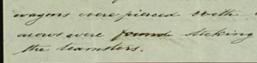 wagons were pierced with
arrows were found sticking
the teamsters.